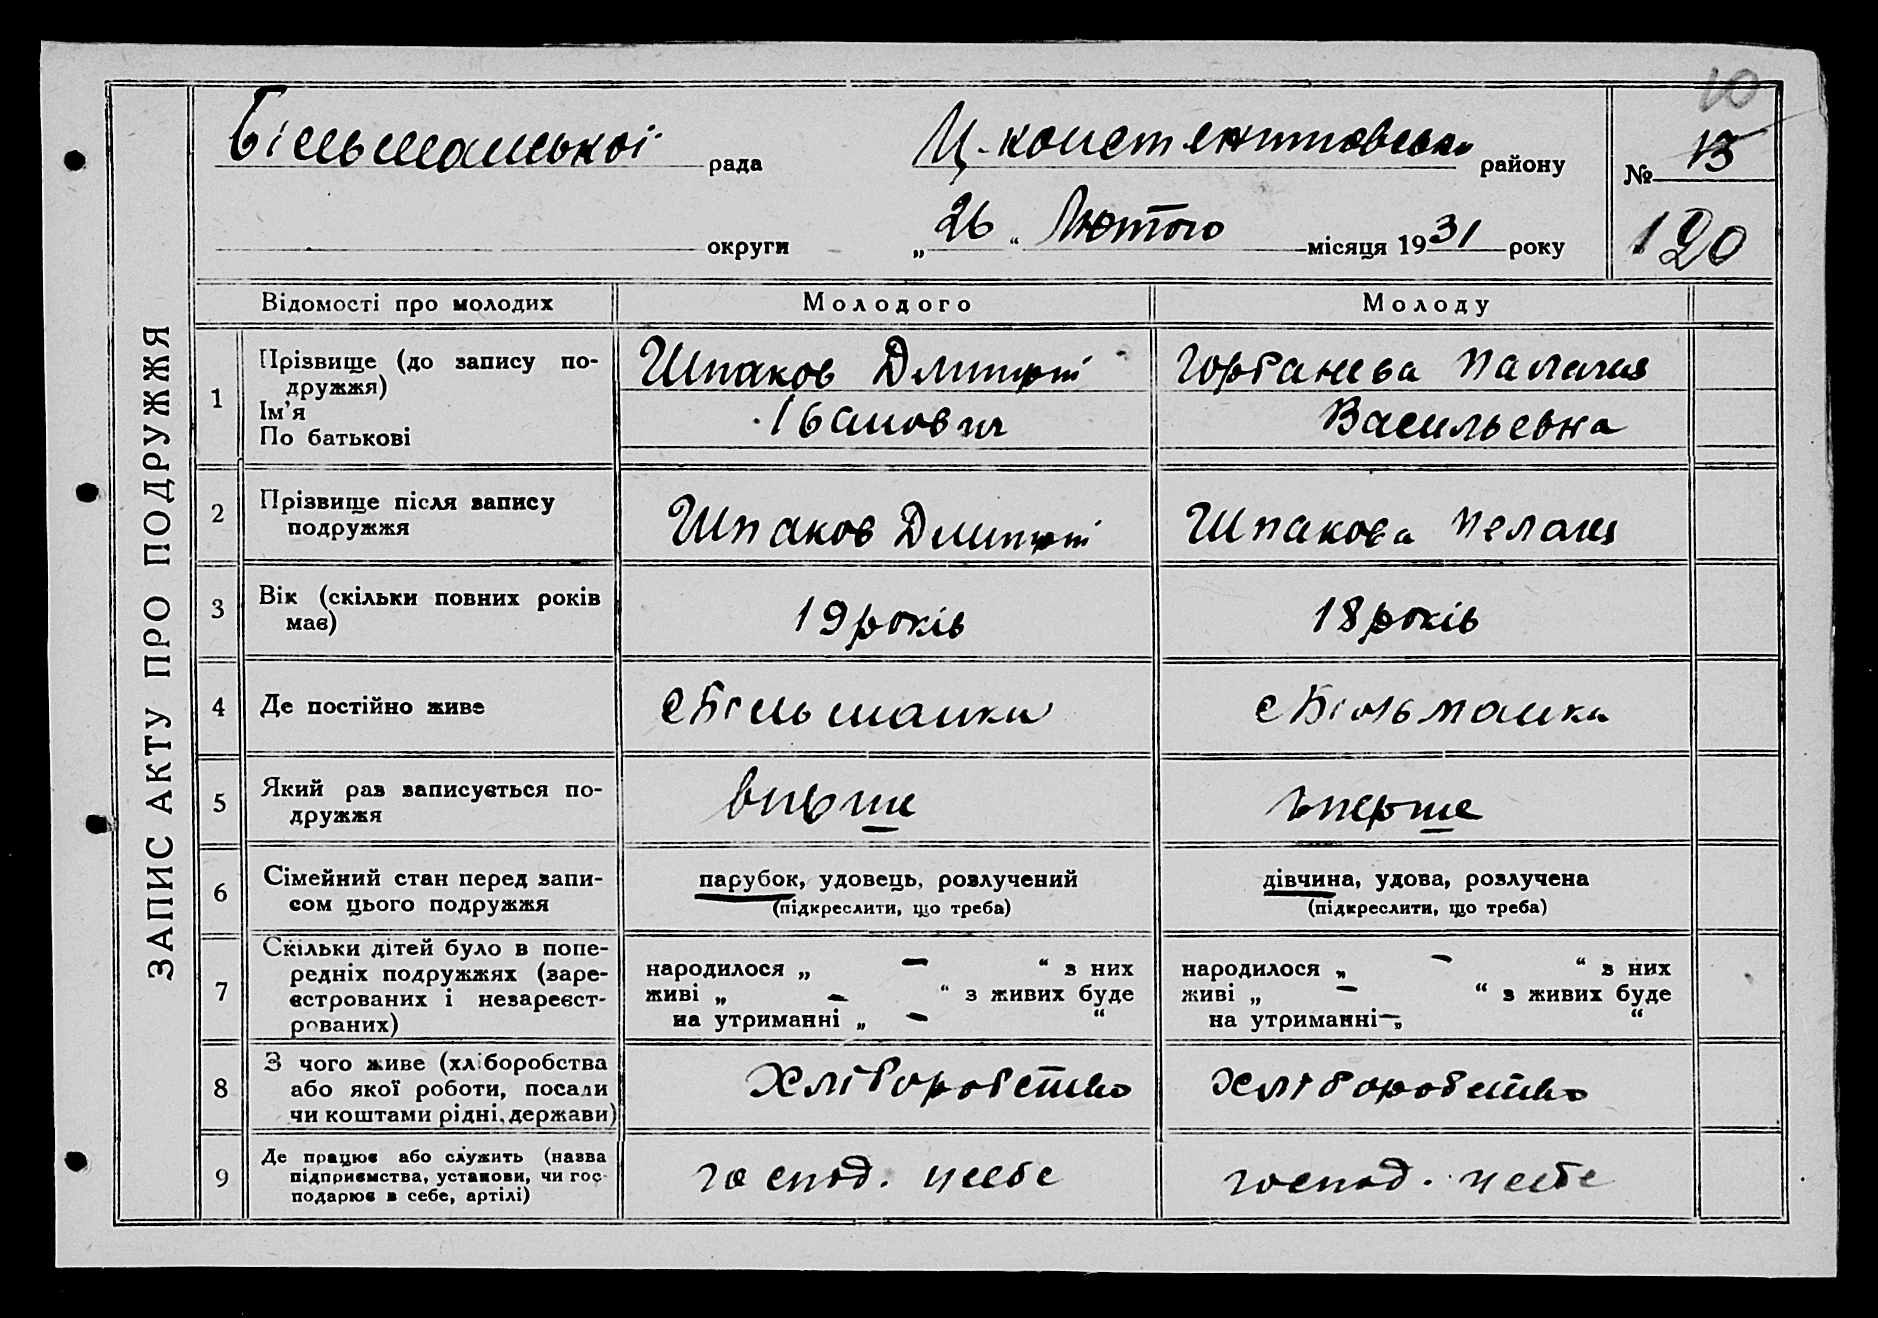 ЗАПИС АКТУ ПРО ПОДРУЖЖЯ
10
Більманської рада
Ц-констянтиновськ району
№ 13
округи
„26“ Лютого місяця 1931 року
120
Відомості про молодих
Молодого
Молоду
1
Прізвище (до запису по-
дружжя)
Ім’я
По батькові
Шпаков Дмитрій
Іванович
Горбанева Палагия
Васильевна
2
Прізвище після запису
подружжя
Шпаков Дмитрій
Шпакова Пелагия
3
Вік (скільки повних років
має)
19 років
18 років
4
Де постійно живе
с Більманки
с Більманка
5
Який раз записується по-
дружжя
вперше
вперше
6
Сімейний стан перед запи-
сом цього подружжя
парубок, удовець, розлучений
(підкреслити, що треба)
дівчина, удова, розлучена
(підкреслити, що треба)
7
Скільки дітей було в попе-
редніх подружжях (заре-
єстрованих і незареєст-
рованих)
народилося „ — “ з них
живі „ — “ з живих буде
на утриманні „ — “
народилося „ — “ з них
живі „ — “ з живих буде
на утриманні — „ “
8
З чого живе (хліборобства
або якої роботи, посади
чи коштами рідні, держави)
хліборобство
хліборобство
9
Де працює або служить (назва
підприємства, установи, чи гос-
подарює в себе, артілі)
господ. усебе
господ. усебе